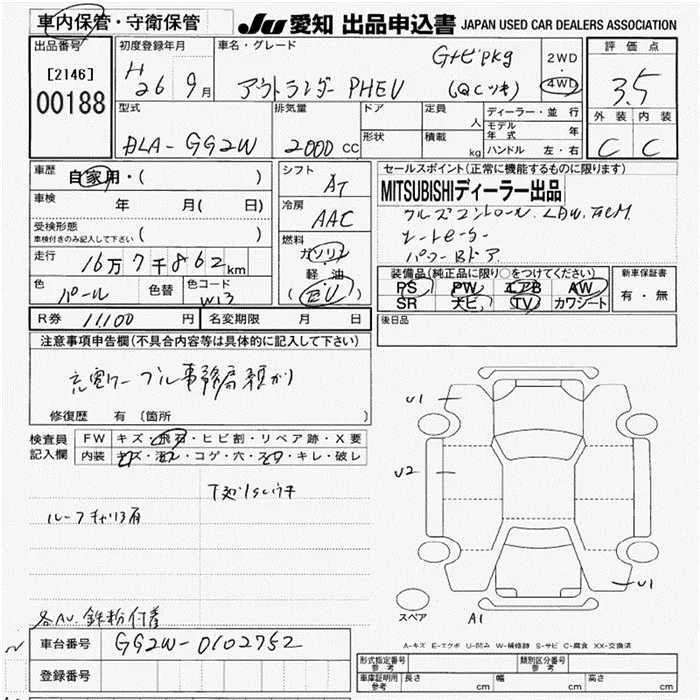 車内保管・守衛保管
JU 愛知 出品申込書 JAPAN USED CAR DEALERS ASSOCIATION
出品番号
[2146]
00188
初度登録年月
H26 9月
車名・グレード
Gナビpkg
アウトランダー PHEV (QCツキ)
2WD
・
4WD
評価点
3.5
型式
DLA-GG2W
排気量
2000 CC
ドア
形状
定員
人
積載
kg
ディーラー・並行
モデル年式 年
ハンドル 左・右
外装 内装
C C
車歴 自家用・( )
車検 年 月(日)
受検形態
車検付きのみ記入して下さい ( )
走行 16万7千862km
色 パール 色替
色コード W13
シフト AT
冷房 AAC
燃料
ガソリン
軽・油
(EV)
セールスポイント(正常に機能するものに限り)
MITSUBISHIディーラー出品
クルーズコントロール
シートヒーター
パワーBドア
装備品(純正品に限り○をつけてください)
PS PW エアB AW
SR 革ビ TV カワシート
新車保証書
有・無
R券 11,100円 名変期限 月 日
後日品
注意事項申告欄(不具合内容等は具体的に記入して下さい)
充電ケーブル事務局預かり
修復歴 有 〔箇所 〕
検査員記入欄
FW キズ・飛石・ヒビ割・リペア跡・X要
内装 キズ・汚れ・コゲ・穴・スレ・キレ・破レ
ルーフキャリア有
鉄粉付着
U1
U2
U1
スペア A1
A-キズ E-エクボ U-凹み W-補修跡 S-サビ C-腐食 XX-交換済
車台番号 GG2W-0102752
登録番号
形式指定番号 参考
類別区分番号 参考
車庫証明用 参考 長さ cm 幅 cm 高さ cm